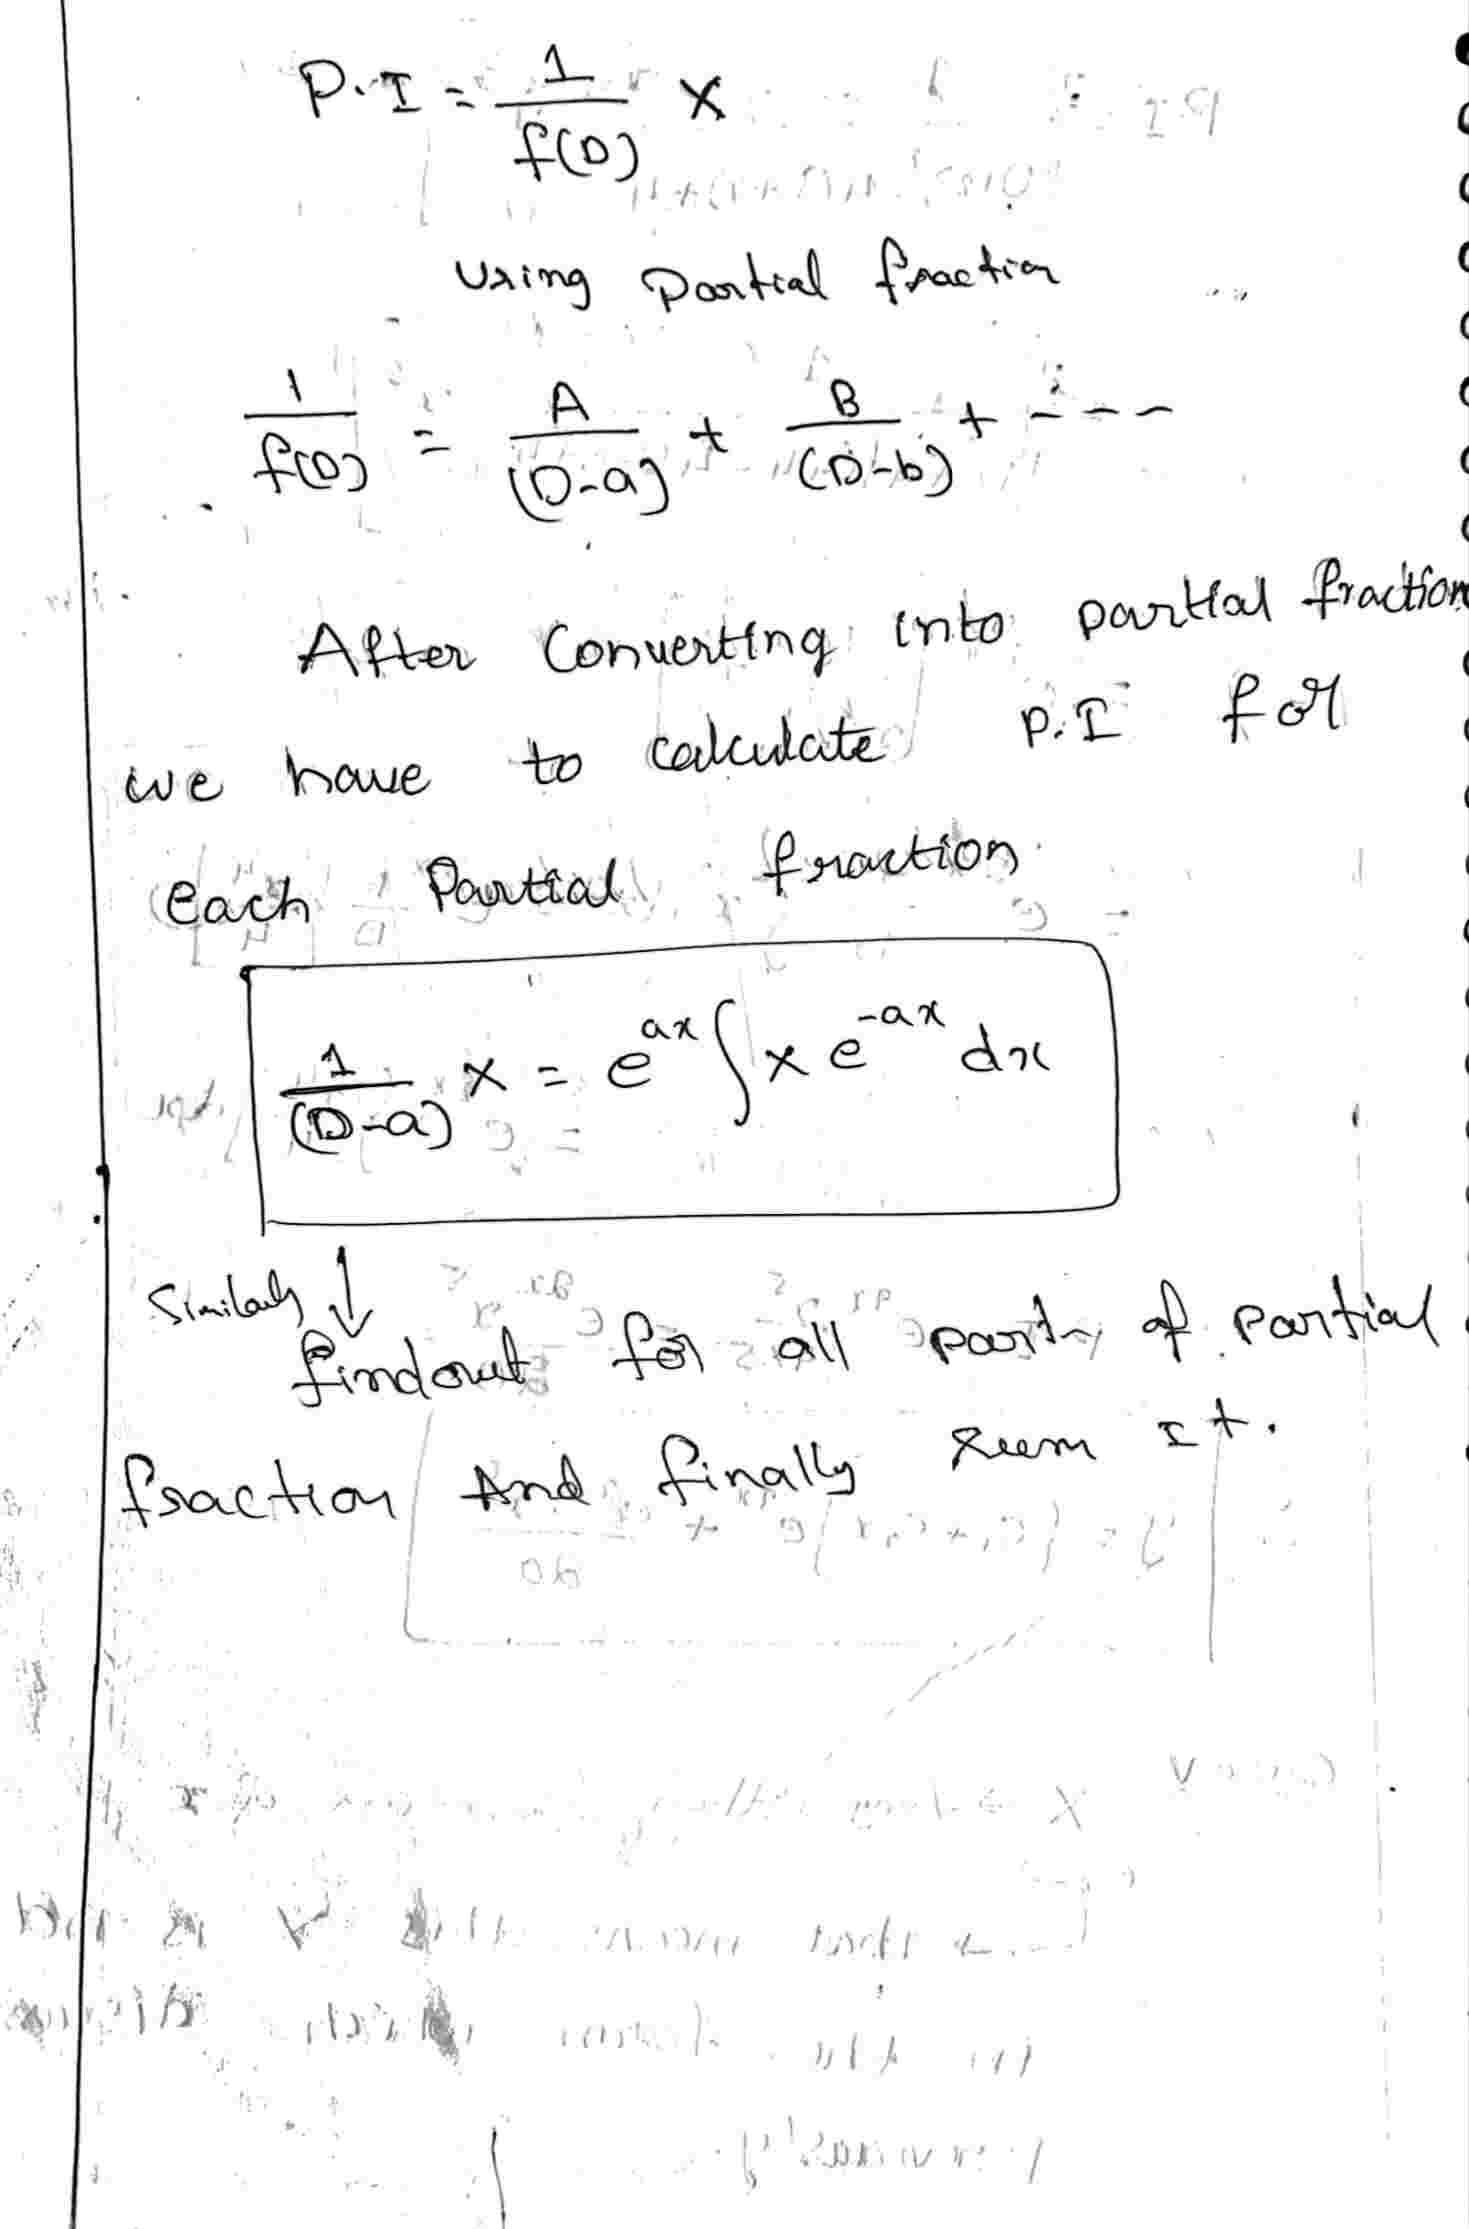 P.I = 1/f(D) X
Using Partial fraction
1/f(D) = A/(D-a) + B/(D-b) + ----
After Converting into partial fraction
we have to calculate P.I for
each Partial fraction
1/(D-a) X = e^{ax} ∫ X e^{-ax} dx
Similarly ↓
findout for all parts of partial
fraction And finally sum It.